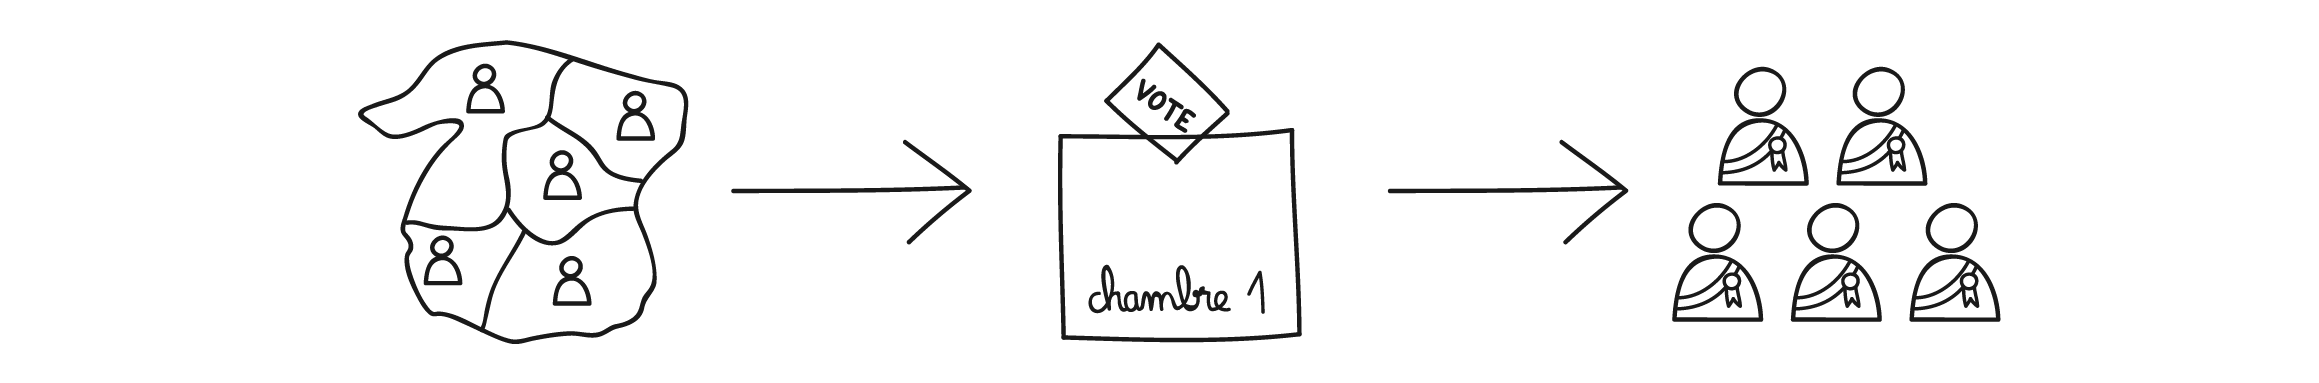 VOTE
chambre 1